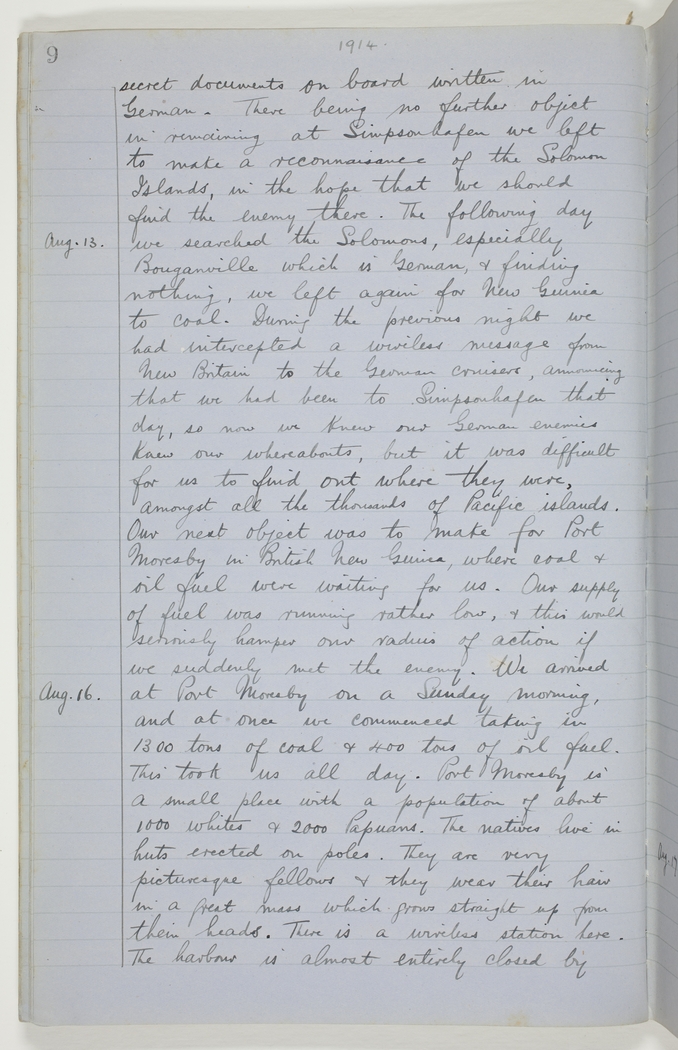 9
1914.
secret documents on board written in
German. There being no further object
in remaining at Simpsonhafen we left
to make a reconnaisance of the Solomon
Islands, in the hope that we should
find the enemy there. The following day
Aug. 13. we searched the Solomons, especially
Bouganville which is German, & finding
nothing, we left again for New Guinea
to coal. During the previous night we
had intercepted a wireless message from
New Britain to the German cruisers, announcing
that we had been to Simpsonhafen that
day, so now we knew our German enemies
knew our whereabouts, but it was difficult
for us to find out where they were,
amongst all the thousands of Pacific islands.
Our next object was to make for Port
Moresby in British New Guinea, where coal &
oil fuel were waiting for us. Our supply
of fuel was running rather low, & this would
seriously hamper our radius of action if
we suddenly met the enemy. We arrived
Aug. 16. at Port Moresby on a Sunday morning,
and at once we commenced taking in
1300 tons of coal & 400 tons of oil fuel.
This took us all day. Port Moresby is
a small place with a population of about
1000 whites & 2000 Papuans. The natives live in
huts erected on poles. They are very
picturesque fellows & they wear their hair
in a great mass which grows straight up from
their heads. There is a wireless station here.
The harbour is almost entirely closed by